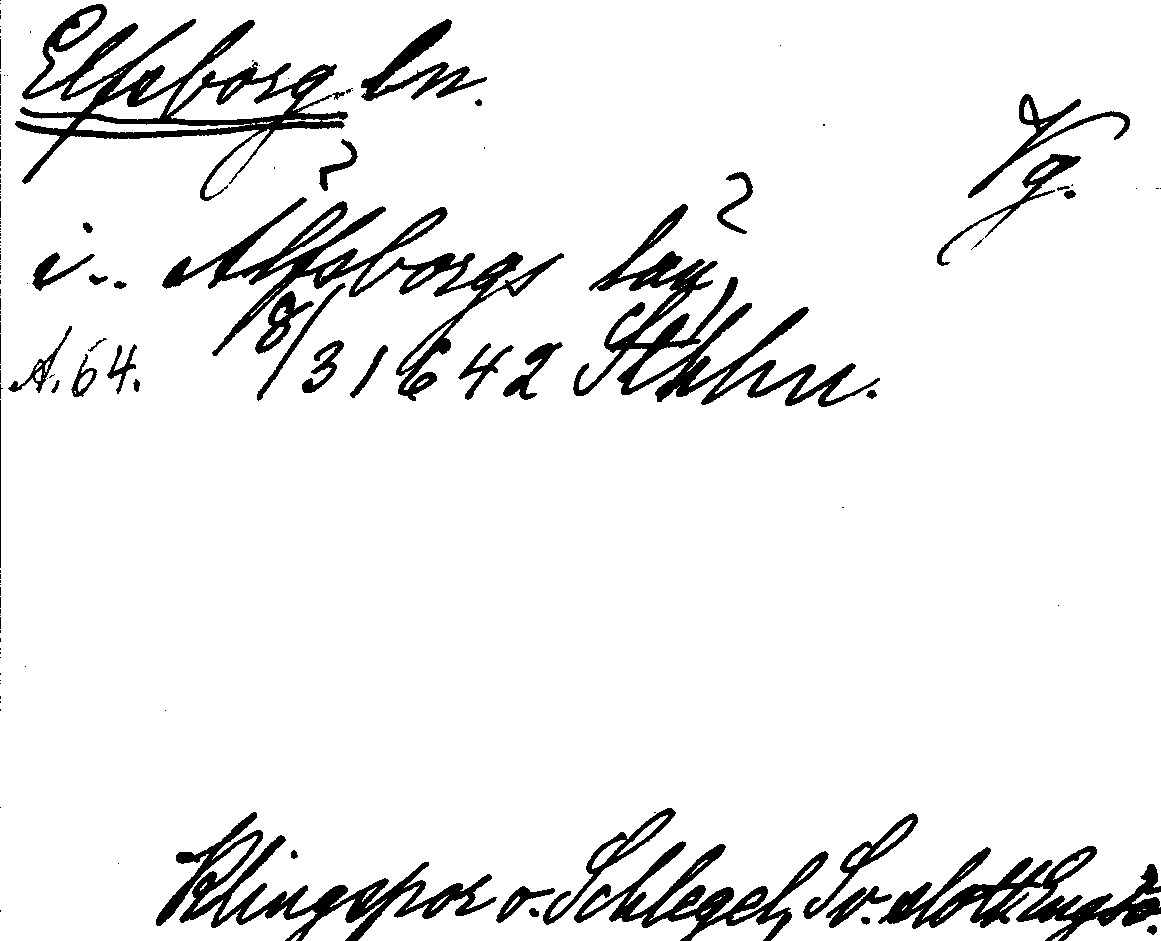 Elfsborg ln.
Vg.
i.. Alfsborgs län,
A. 64. 18/3 1642 Sthhn.
Klingspor o. Schlegel, Sv. slott. Engsö.